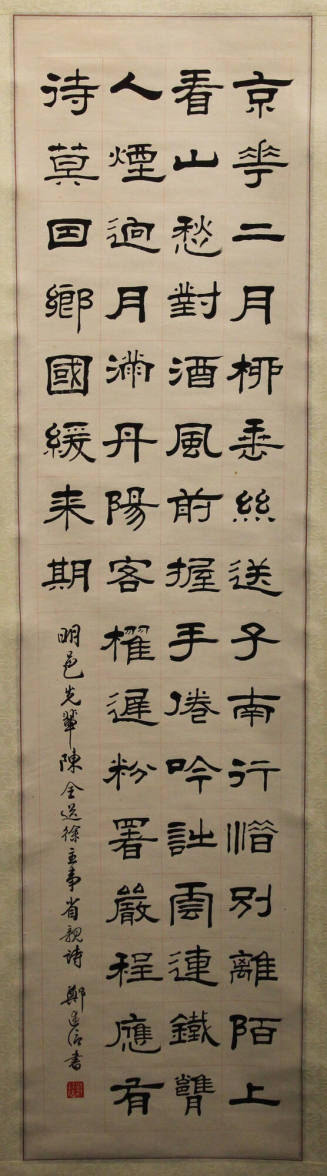 京華二月柳垂絲送子南行惜別離陌上
看山愁對酒風前握手倦吟詩雲連鐵甕
人煙迥月滿丹陽客櫂遲粉署嚴程應有
待莫因鄉國緩来期
明邑先輩陳全送徐主事省親詩 鄭信書